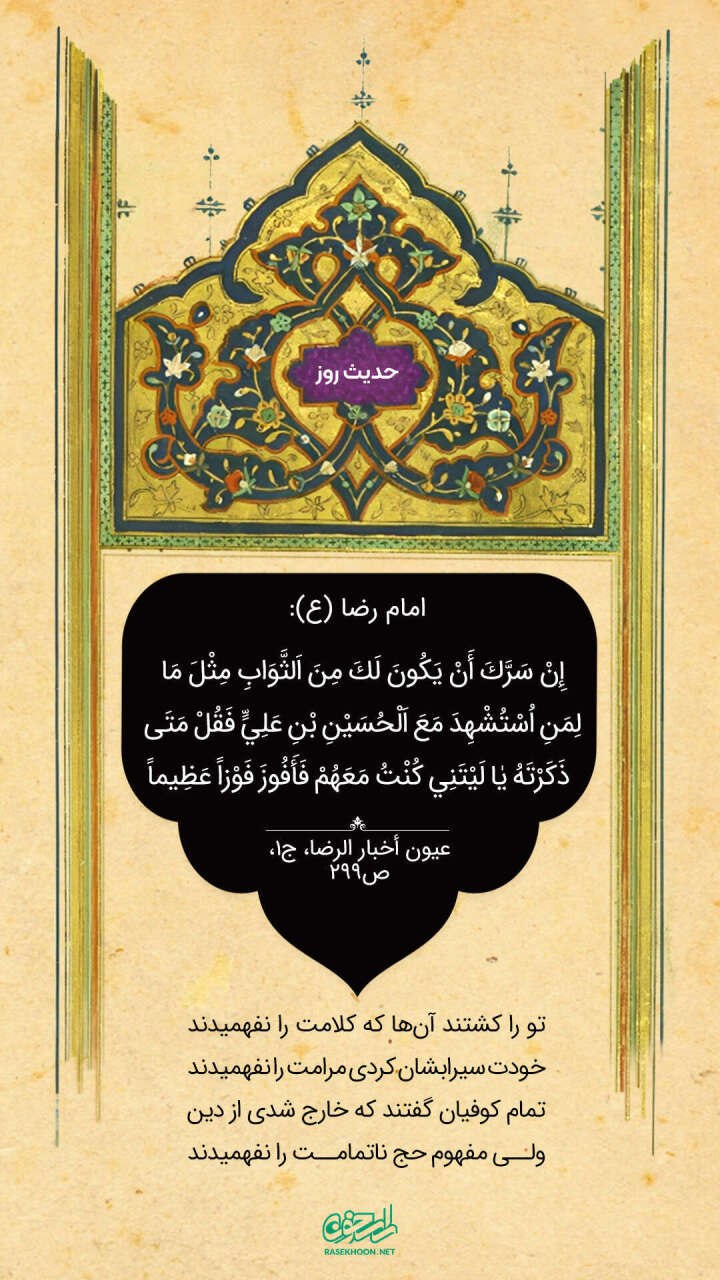 حدیث روز
امام رضا (ع):
إِنْ سَرَّكَ أَنْ يَكُونَ لَكَ مِنَ اَلثَّوَابِ مِثْلَ مَا
لِمَنِ اُسْتُشْهِدَ مَعَ اَلْحُسَيْنِ بْنِ عَلِيٍّ فَقُلْ مَتَى
ذَكَرْتَهُ يٰا لَيْتَنِي كُنْتُ مَعَهُمْ فَأَفُوزَ فَوْزاً عَظِيماً
عیون أخبار الرضا، ج۱،
ص۲۹۹
تو را کشتند آن‌ها که کلامت را نفهمیدند
خودت سیرابشان کردی مرامت را نفهمیدند
تمام کوفیان گفتند که خارج شدی از دین
ولــی مفهوم حج ناتمامــت را نفهمیدند
راسخون
RASEKHOON.NET